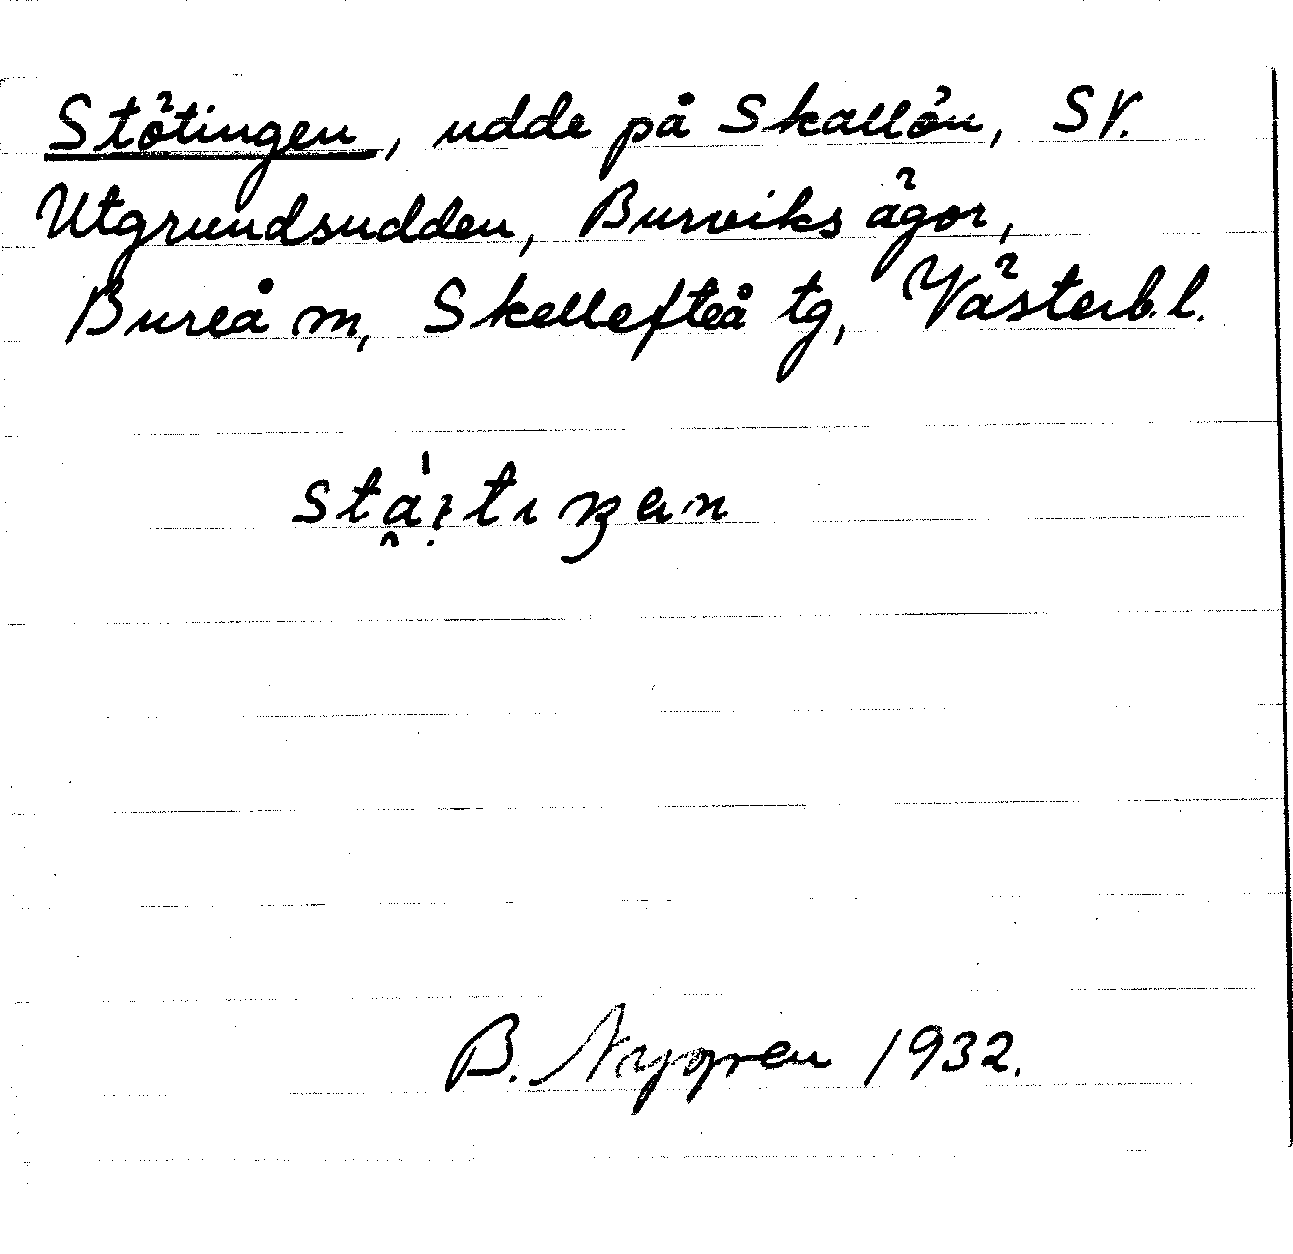 Stötingen, udde på Skallön, SV.
Utgrundsudden, Burviks ägor,
Bureå m, Skellefteå tg, Västerb.l.
B. Nygren 1932.